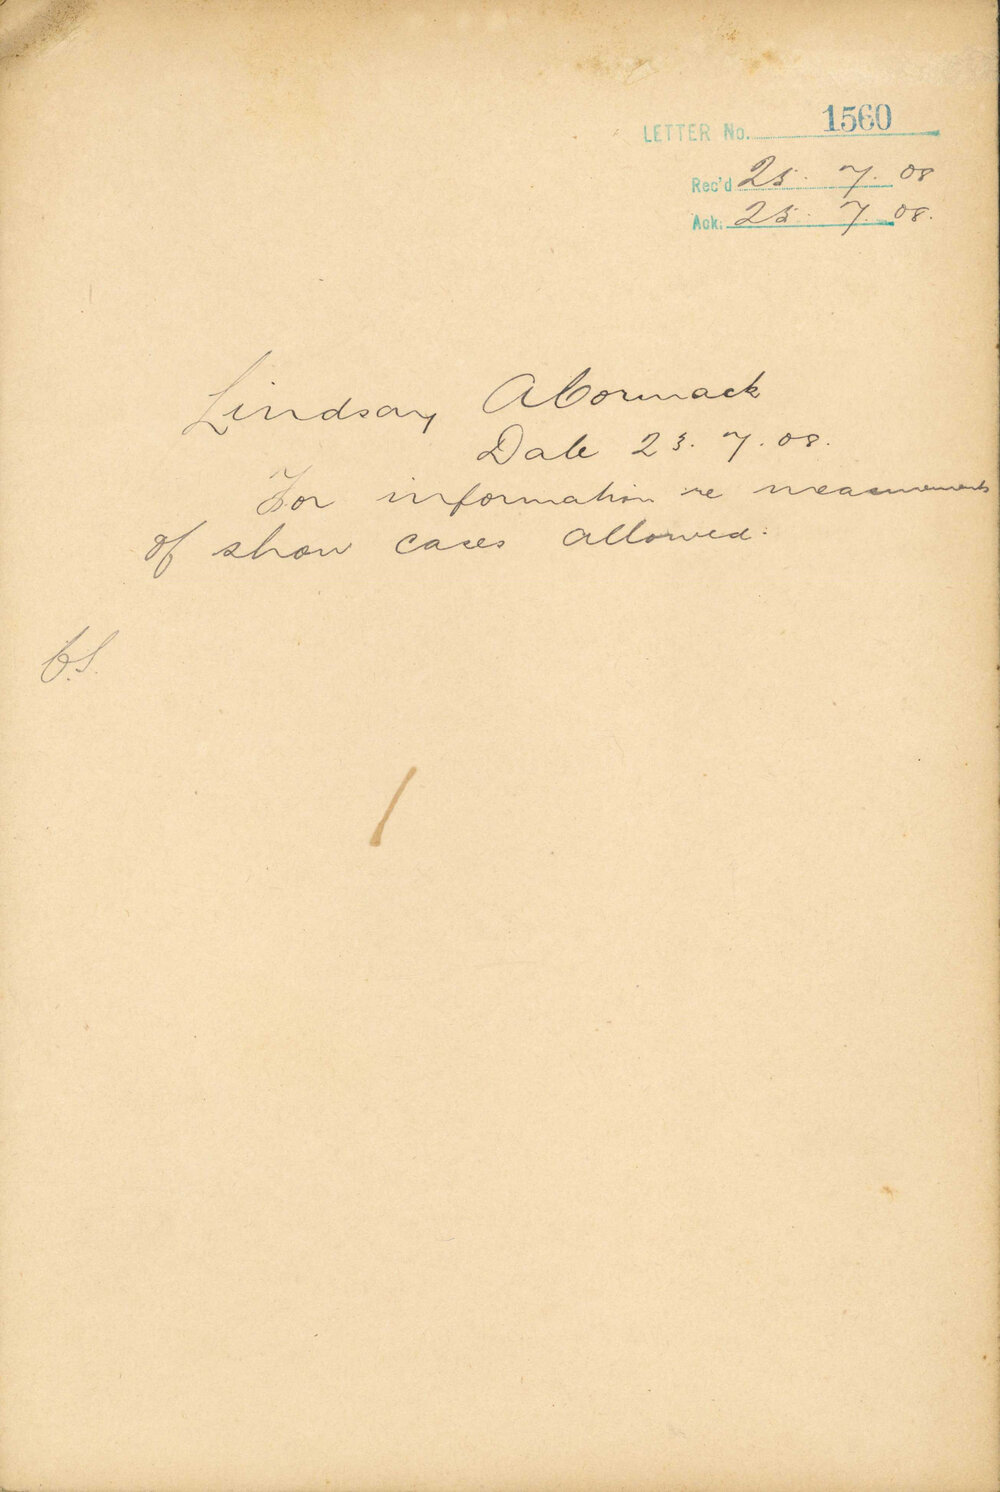 LETTER No. 1560
Rec'd 25. 7. 08
Ack. 25. 7. 08.
Lindsay A Cormack
Date 23. 7. 08.
For information re measurements
of show cases allowed.